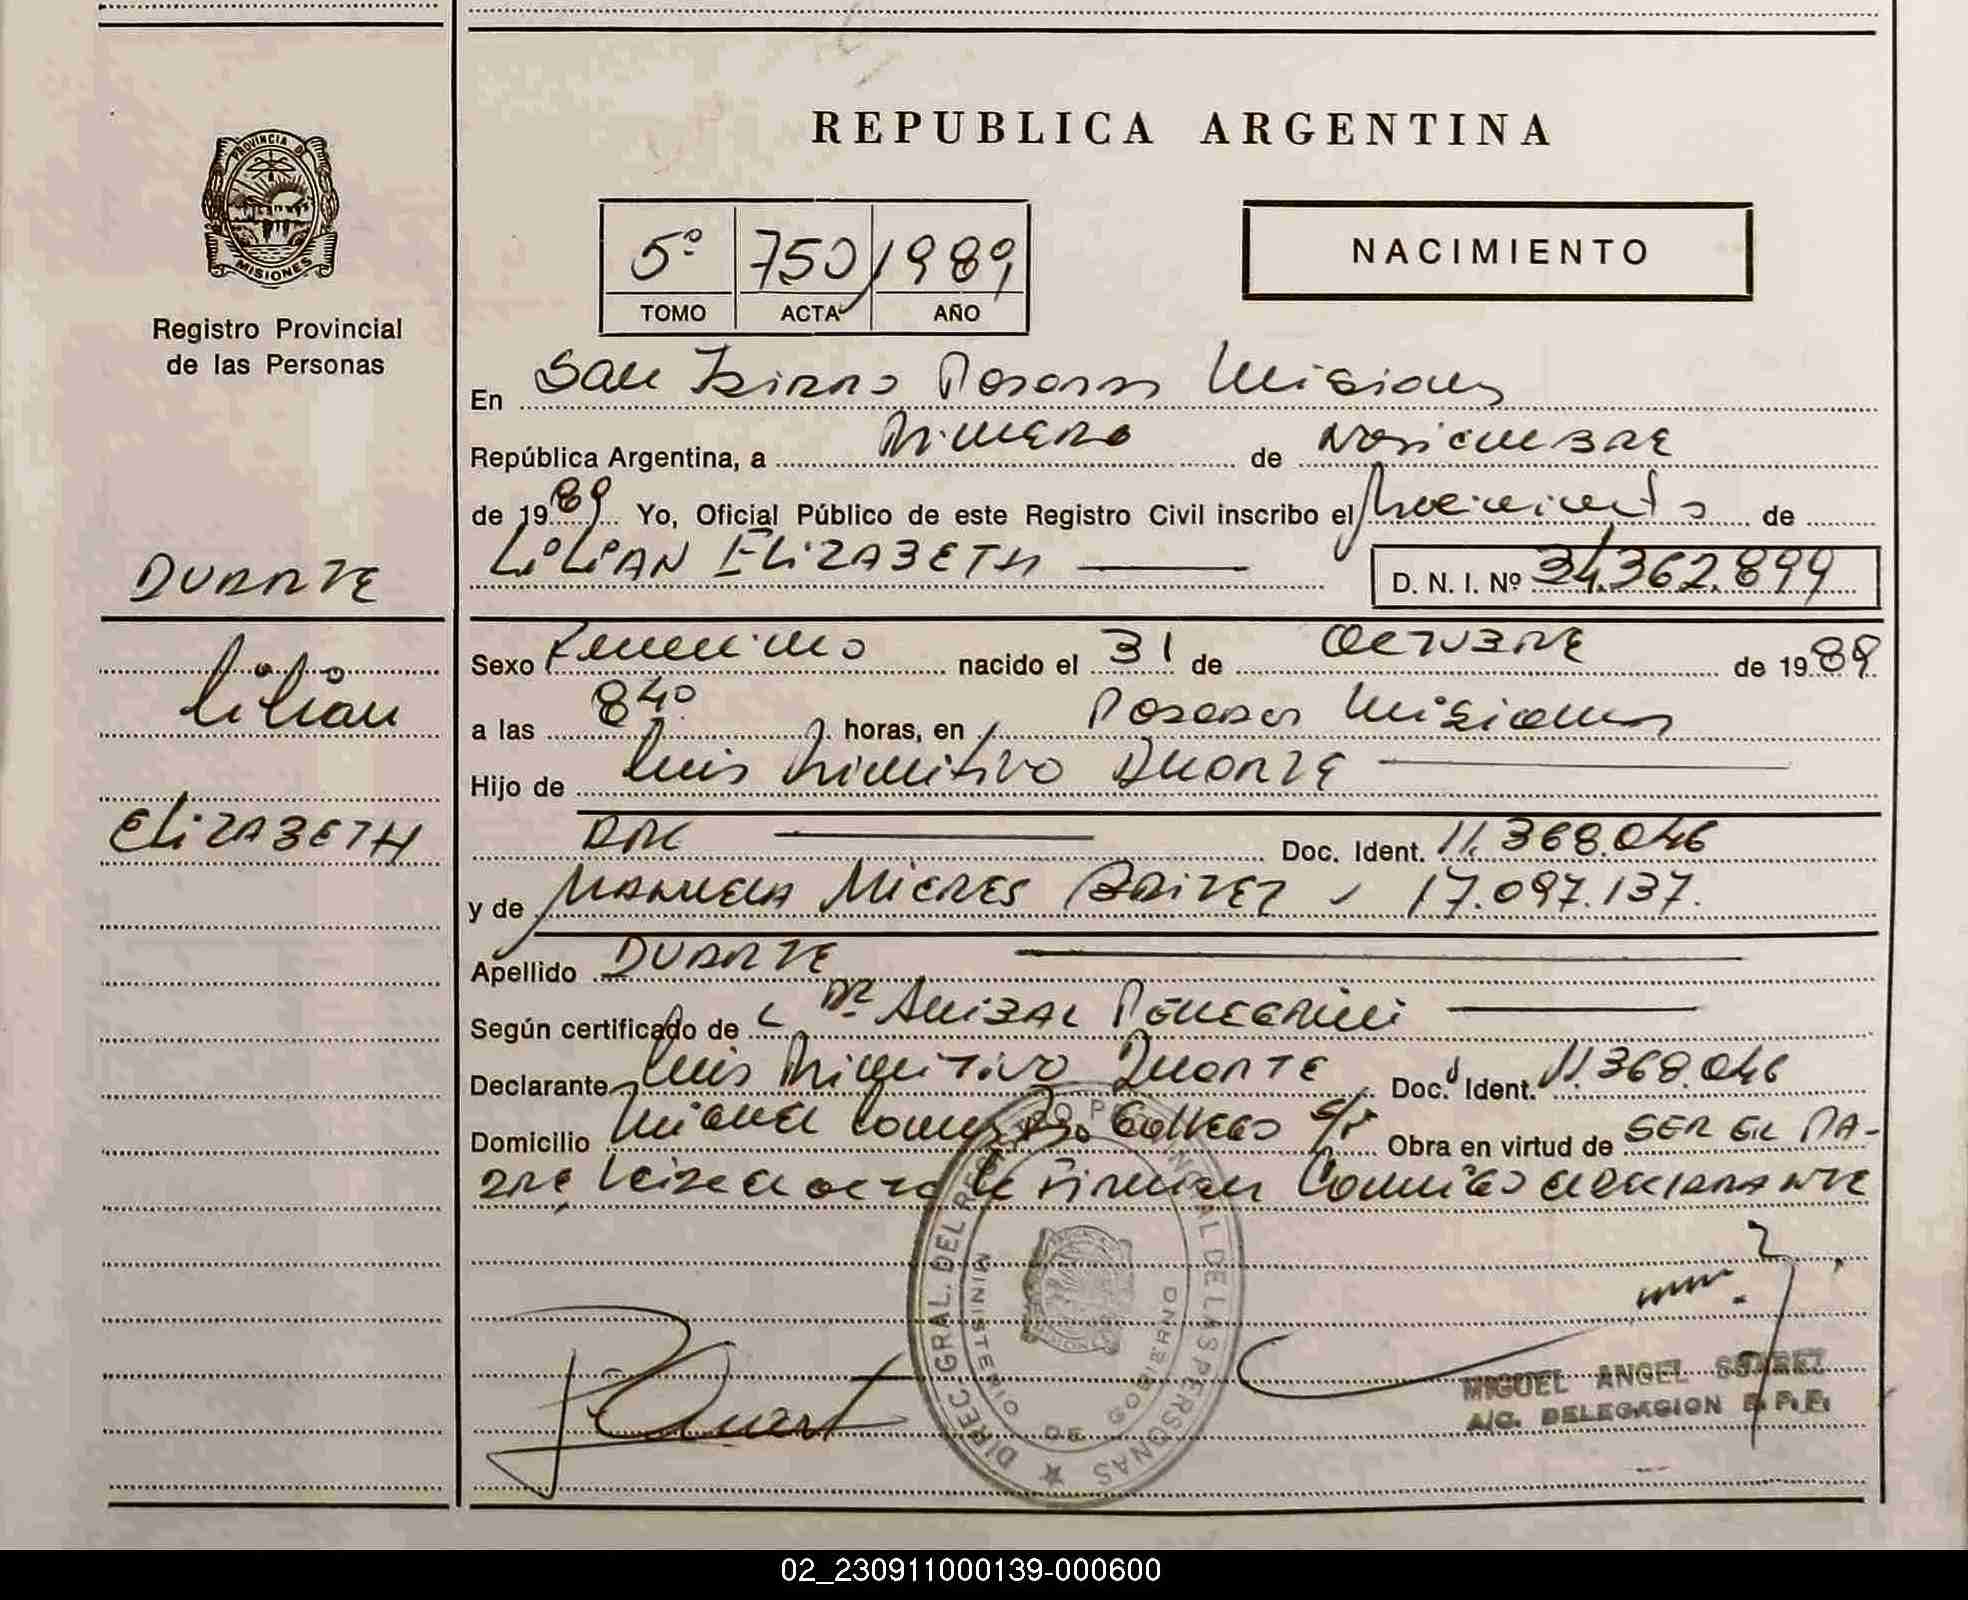 REPUBLICA ARGENTINA
PROVINCIA D
MISIONES
Registro Provincial
de las Personas
5º 750 1989
TOMO ACTA AÑO
NACIMIENTO
En San Isidro Posadas Misiones
República Argentina, a Primero de Noviembre
de 1989 Yo, Oficial Público de este Registro Civil inscribo el Nacimiento de
LILIAN ELIZABETH
D. N. I. Nº 34.362.899
DUARTE
Lilian
ELIZABETH
Sexo Femenino nacido el 31 de OCTUBRE de 1989
a las 840 horas, en Posadas Misiones
Hijo de Luis Primitivo Duarte
Doc. Ident. 11.368.046
y de MANUELA MIERES 17.097.137.
Apellido DUARTE
Según certificado de Dr Anibal
Declarante Luis Primitivo Duarte Doc. Ident. 11.368.046
Domicilio Miguel Obra en virtud de SER EL PA-
DRE Leida el acta la firman Conmigo el declarante
DIREC. GRAL. DEL REGISTRO PROVINCIAL DE LAS PERSONAS
MINISTERIO DE GOBIERNO
MIGUEL ANGEL SUAREZ
A/C. DELEGACION
02_230911000139-000600